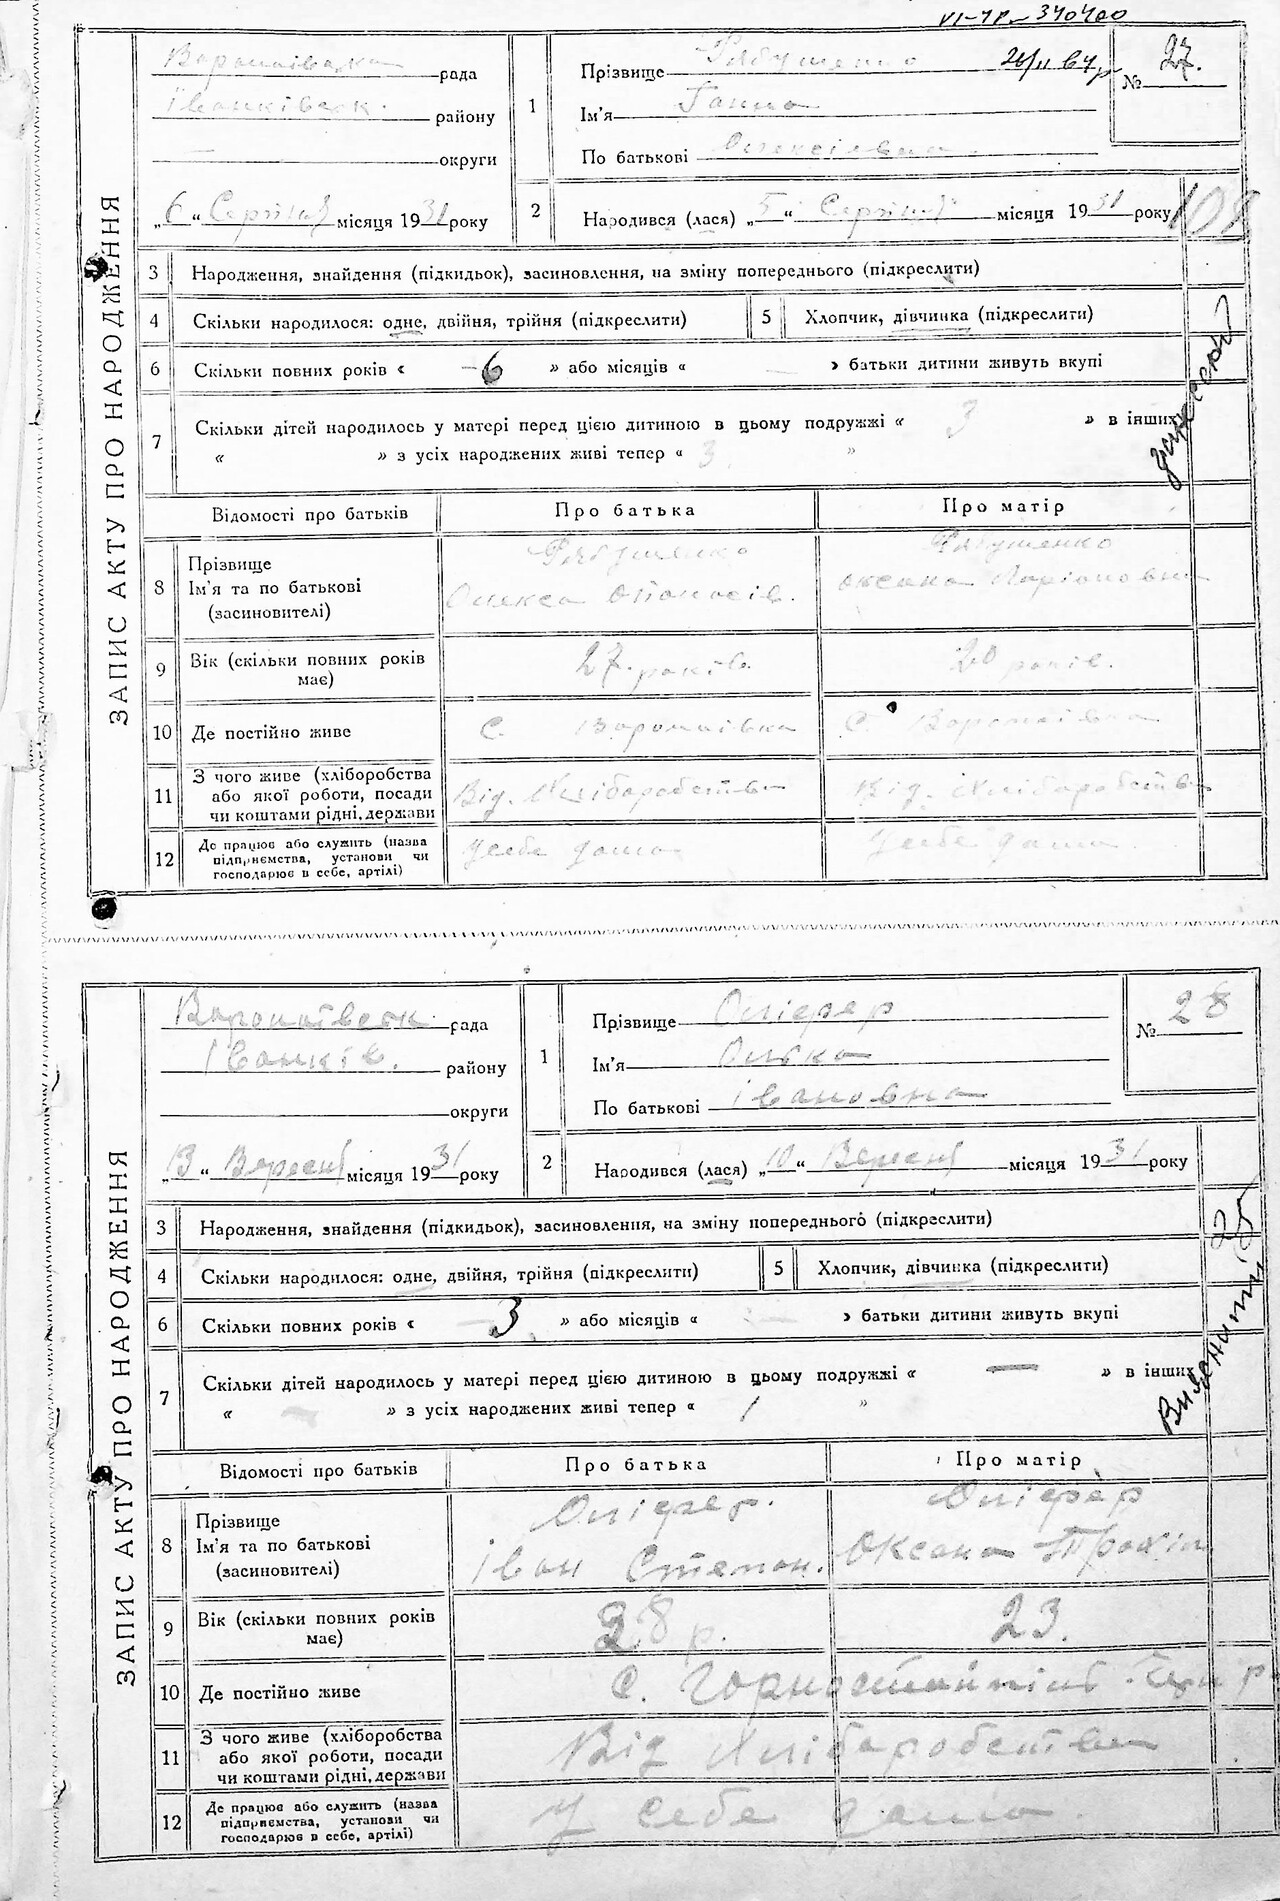 VI-ЧР-340400
ЗАПИС АКТУ ПРО НАРОДЖЕННЯ
Воропаївська рада
Іванківськ. району
— округи
„6“ Серпня місяця 1931 року
1 Прізвище Рябушенко
Ім'я Ганна
По батькові Олексіївна
№ 27.
2 Народився (лася) „5“ Серпня місяця 1931 року
3 Народження, знайдення (підкидьок), засиновлення, на зміну попереднього (підкреслити)
4 Скільки народилося: одне, двійня, трійня (підкреслити) 5 Хлопчик, дівчинка (підкреслити)
6 Скільки повних років « 6 » або місяців « — » батьки дитини живуть вкупі
7 Скільки дітей народилось у матері перед цією дитиною в цьому подружжі « 3 » в інших
« » з усіх народжених живі тепер « 3 »
Відомості про батьків Про батька Про матір
8 Прізвище Ім'я та по батькові (засиновителі) Рябушенко Олекса Опанасів. Рябушенко Оксана Ларіоновна
9 Вік (скільки повних років має) 27 років. 20 років.
10 Де постійно живе С. Воропаївка С. Воропаївка
11 З чого живе (хліборобства або якої роботи, посади чи коштами рідні, держави Від. Хліборобства Від. Хліборобства
12 Де працює або служить (назва підприємства, установи чи господарює в себе, артілі) У себе дома У себе дома
ЗАПИС АКТУ ПРО НАРОДЖЕННЯ
Воропаївськ рада
Іванків. району
округи
„13“ Вересня місяця 1931 року
1 Прізвище Оліфер
Ім'я Олька
По батькові Івановна
№ 28
2 Народився (лася) „10“ Вересня місяця 1931 року
3 Народження, знайдення (підкидьок), засиновлення, на зміну попереднього (підкреслити)
4 Скільки народилося: одне, двійня, трійня (підкреслити) 5 Хлопчик, дівчинка (підкреслити)
6 Скільки повних років « 3 » або місяців « — » батьки дитини живуть вкупі
7 Скільки дітей народилось у матері перед цією дитиною в цьому подружжі « — » в інших
« — » з усіх народжених живі тепер « 1 »
Відомості про батьків Про батька Про матір
8 Прізвище Ім'я та по батькові (засиновителі) Оліфер. Іван Степан. Оліфер Оксана Трохім
9 Вік (скільки повних років має) 28 р. 23.
10 Де постійно живе С. Горностайпіль
11 З чого живе (хліборобства або якої роботи, посади чи коштами рідні, держави Від Хліборобства
12 Де працює або служить (назва підприємства, установи чи господарює в себе, артілі) У себе дома.